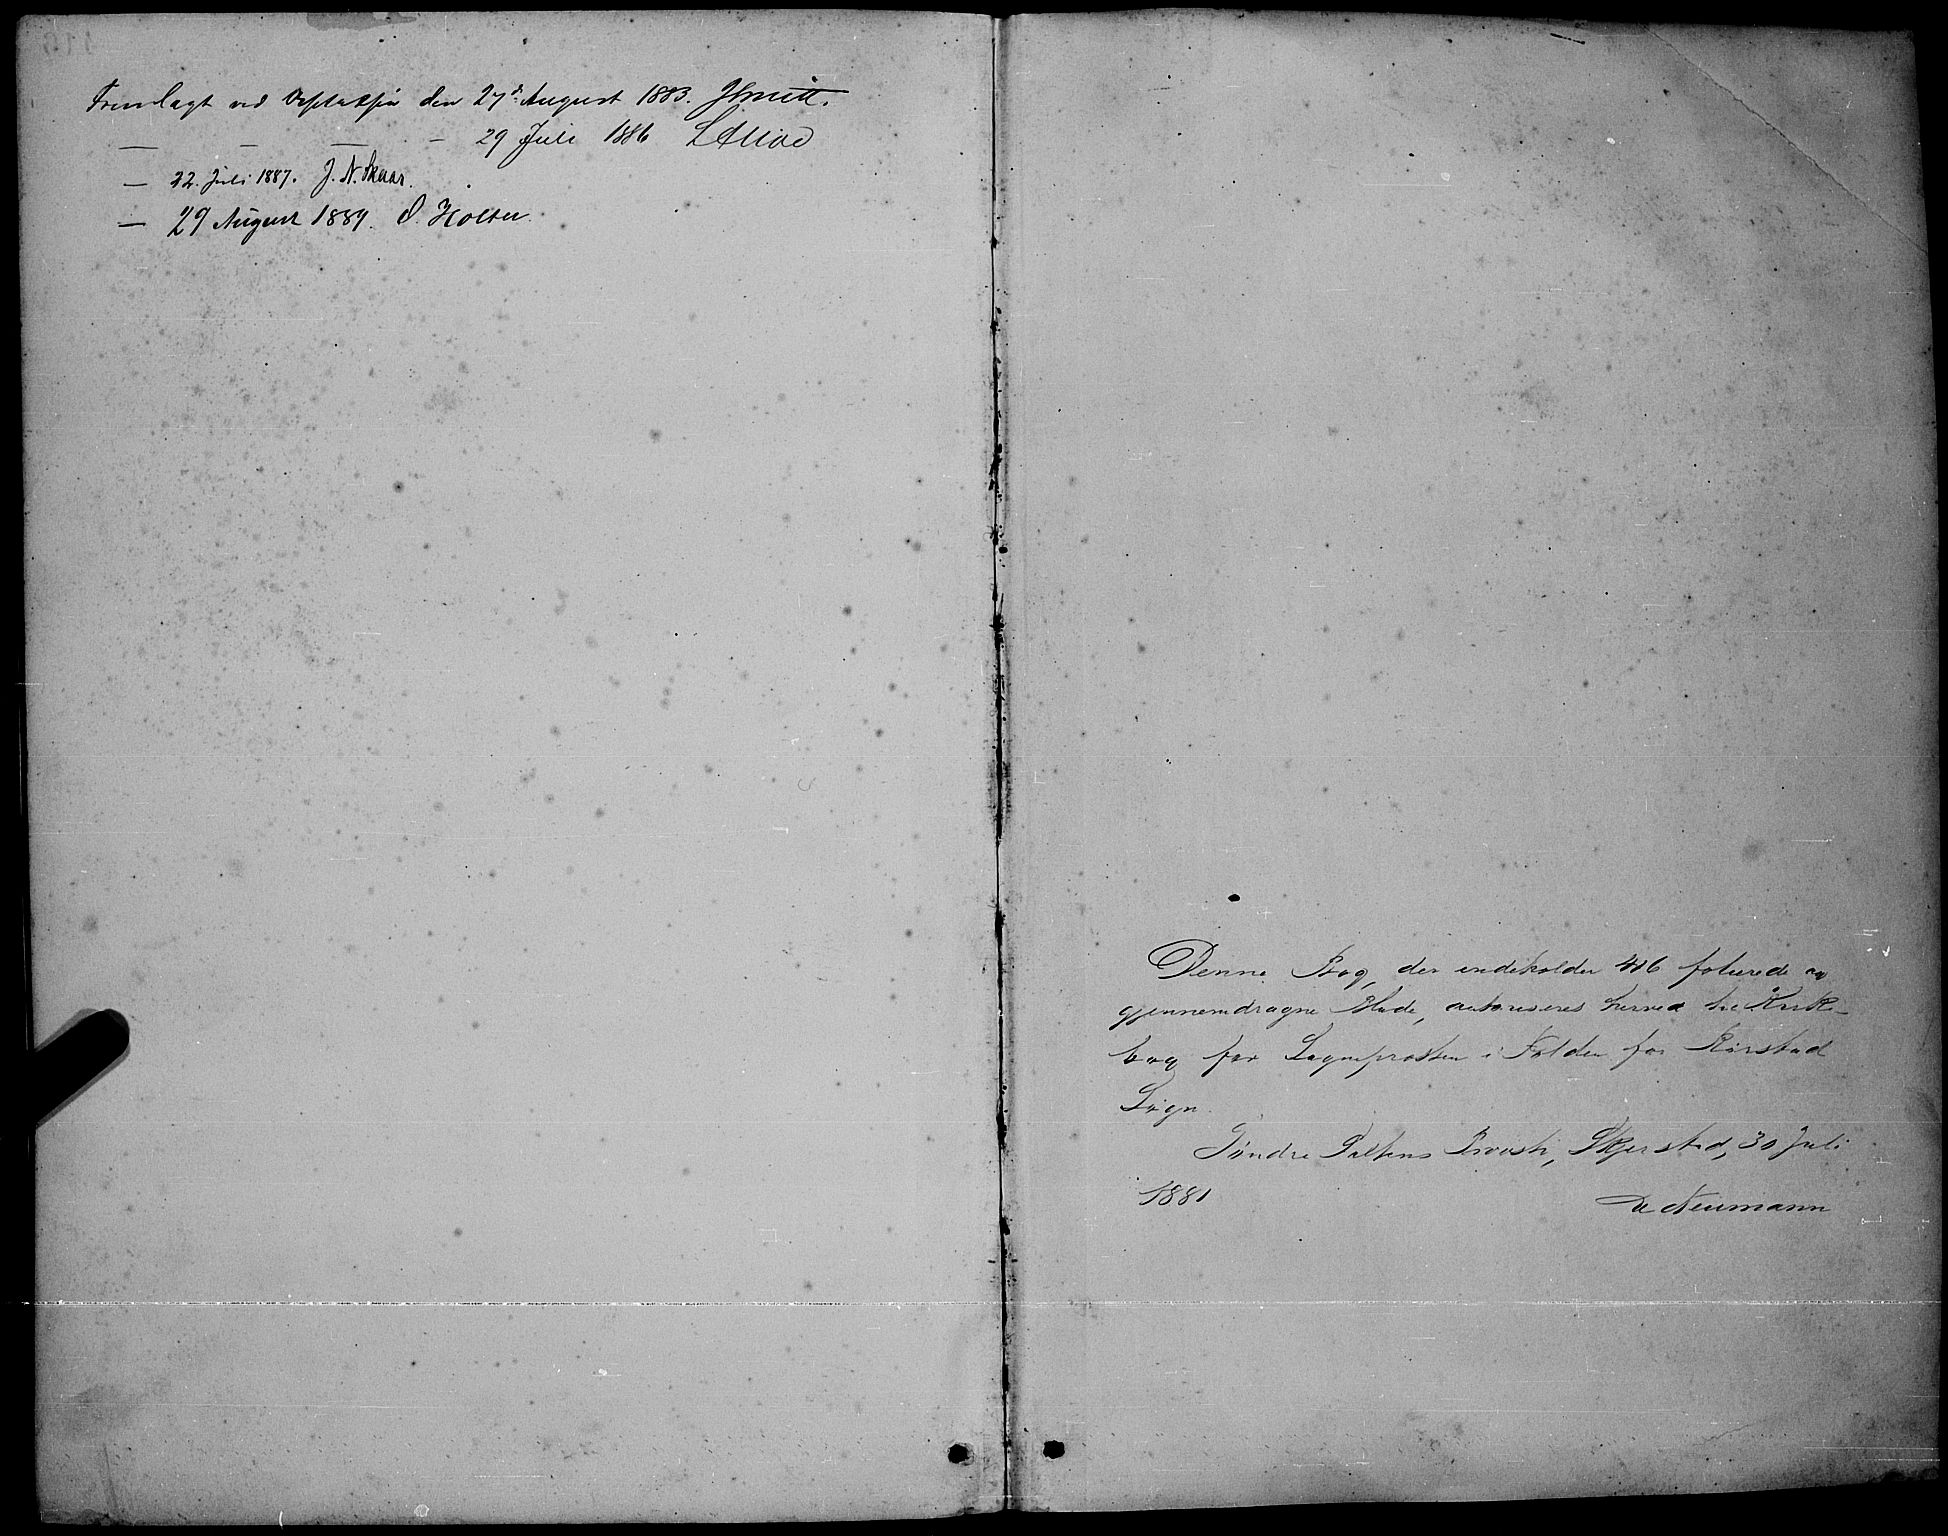 Fremlagt ved Visitatsen den 27de August 1883. JSmitt.
— — — — 29 Juli 1886
— 22. Juli 1887. J. N. Skaar.
— 29 August 1889. O. Holter.
Denne Bog, der indeholder 116 folierede og
gjennemdragne Blade, autoriseres herved til Kirke-
bog for Sognepresten i Folden for Rørstad
Sogn.
Søndre Saltens Provsti, Skjerstad, 30 Juli
1881
Neumann